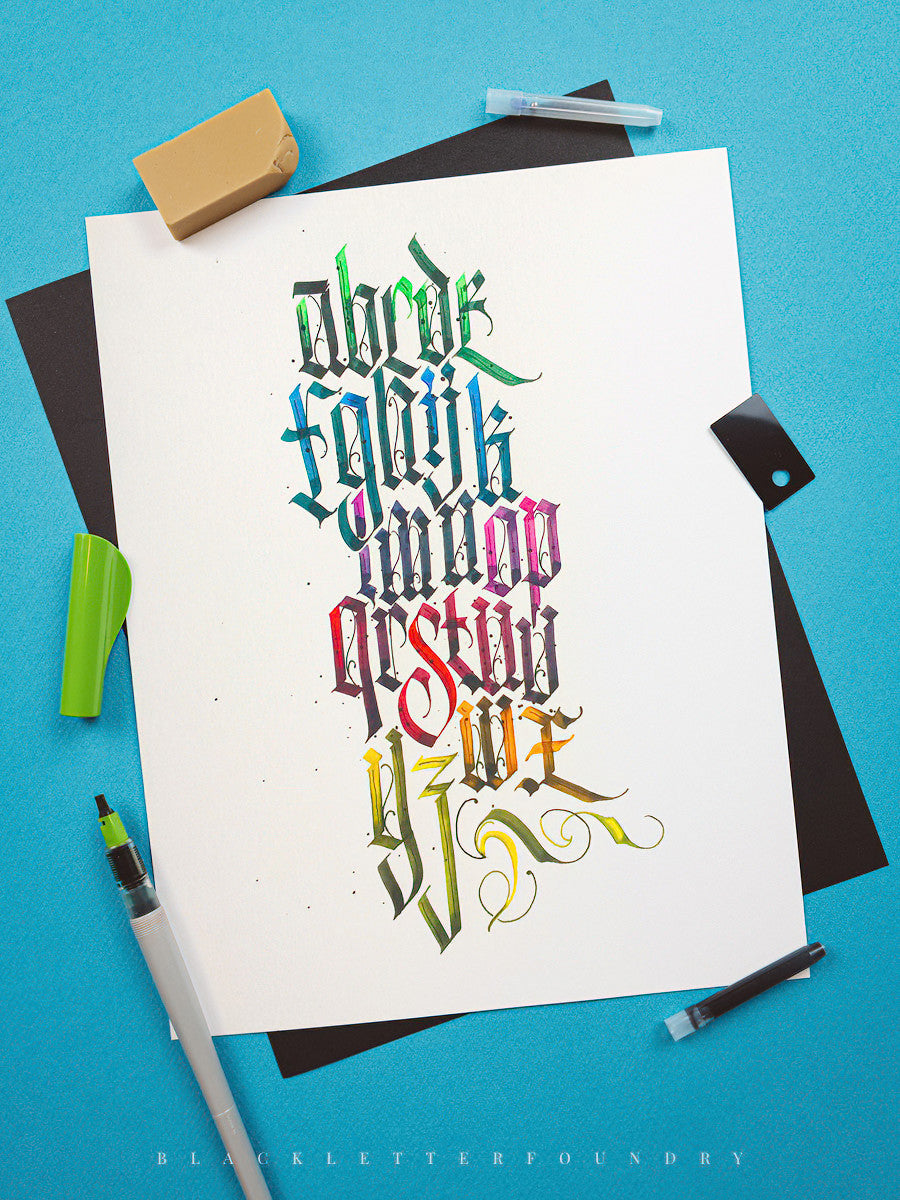 abcde
fghijk
lmnop
qrstuv
yzwx
BLACKLETTERFOUNDRY